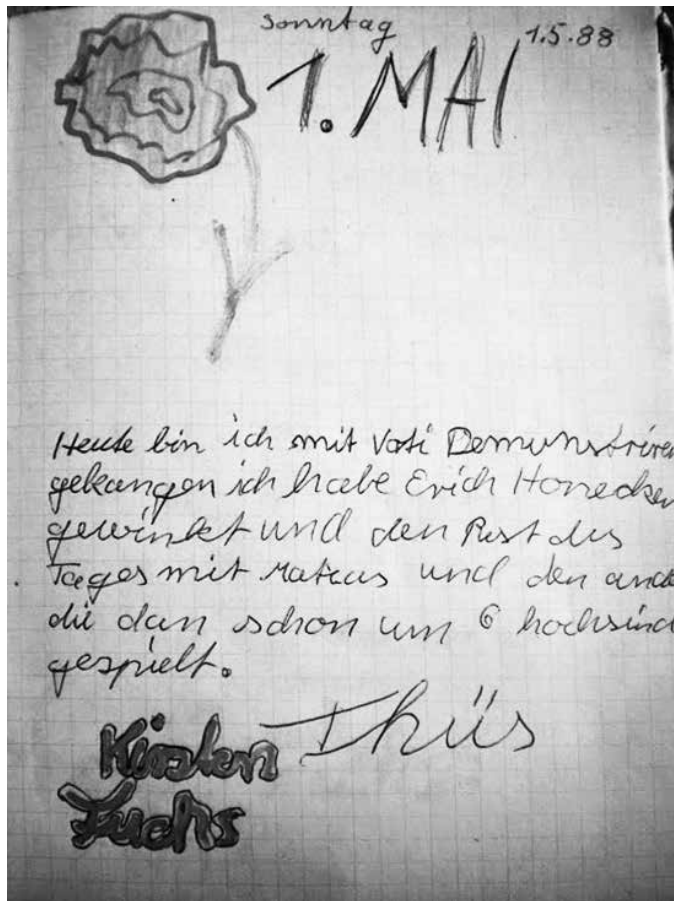 sonntag
1.5.88
1. MAI
Heute bin ich mit Vati Demunstriren
gekangen ich habe Erich Honecker
gewinkt und den Rest des
Tages mit Matias und den ande
die dan schon um 6 hochsind
gespielt.
Thüs
Kirsten
Fuchs